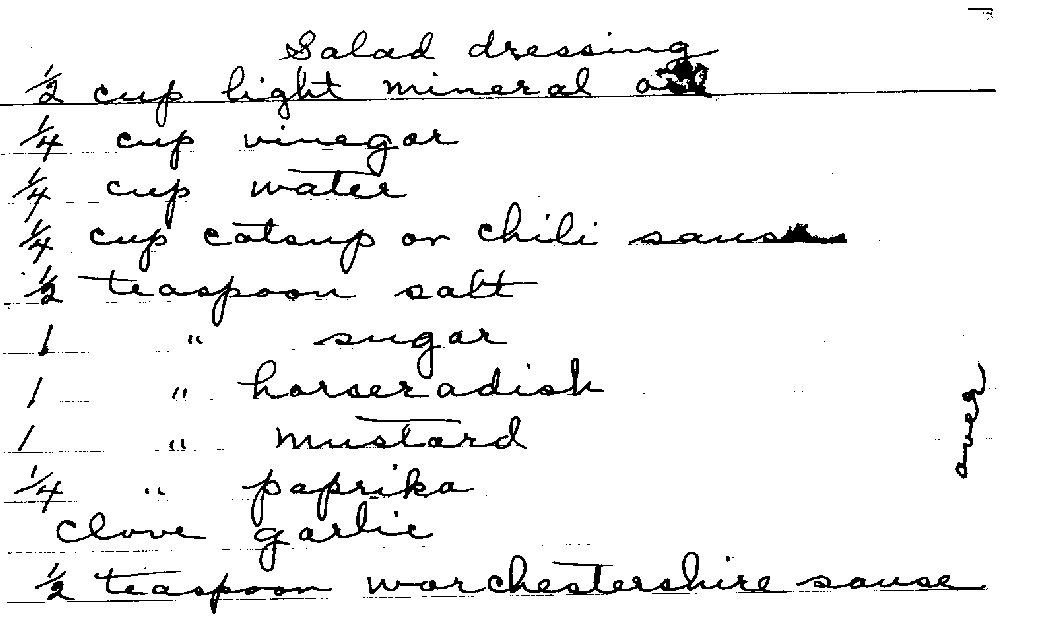 Salad dressing
1/2 cup light mineral oil
1/4 cup vinegar
1/4 cup water
1/4 cup catsup or chili sause
1/2 teaspoon salt
1 " sugar
1 " horseradish
1 " mustard
1/4 " paprika
clove garlic
1/2 teaspoon worchestershire sause
over